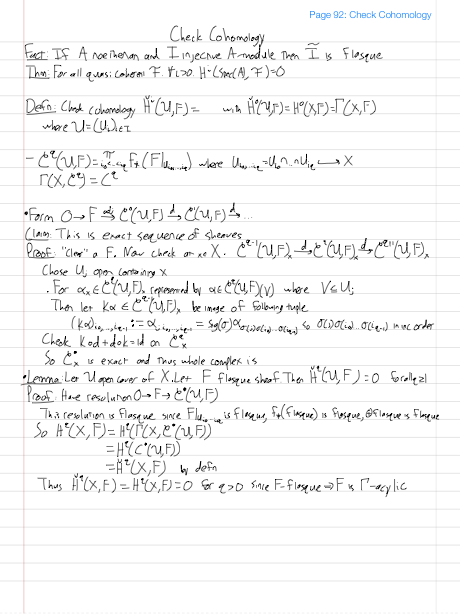 Page 92: Check Cohomology
Check Cohomology
Fact: If A noetherian and I injective A-module then Ĩ is flasque
Thm: For all quasicoherent F. ∀i>0. Hⁱ(Spec(A), F)=0
Defn: Check cohomology Ȟⁱ(U,F)= with Ȟ⁰(U,F)=H⁰(X,F)=Γ(X,F)
where U=(Uᵢ)ᵢ∈I
- C^q(U,F)=∏_{i₀<...<i_q} f_*(F|_{U_{i₀...i_q}}) where U_{i₀...i_q}=U_{i₀}∩...∩U_{i_q} ⟶ X
Γ(X,C^q)=C^q
• Form 0→F → C⁰(U,F) →d C¹(U,F) →d ...
Claim: This is exact sequence of sheaves
Proof: "Clear" at F. Now check at x∈X. C^{q-1}(U,F)_x →d C^q(U,F)_x →d C^{q+1}(U,F)_x
Chose U_j open containing x
. For α_x∈C^q(U,F)_x represented by α∈C^q(U,F)(V) where V⊆U_j
Then let Kα∈C^{q-1}(U,F)_x be image of following tuple
(Kα)_{i₀,...,i_{q-1}} := α_{j,i₀,...,i_{q-1}} = sg(σ)α_{σ(j)σ(i₀)...σ(i_{q-1})} so σ(j)σ(i₀)...σ(i_{q-1}) in inc order
Check K∘d+d∘K=Id on C^q_x
So C^•_x is exact and thus whole complex is
• Lemma: Let U open cover of X. Let F flasque sheaf. Then Ȟ^q(U,F)=0 for all q≥1
Proof: Have resolution 0→F→C^•(U,F)
This resolution is flasque since F|_{U_{i₀...i_q}} is flasque, f_*(flasque) is flasque, ⊕flasque is flasque
So H^q(X,F)=H^q(Γ(X,C^•(U,F))
=H^q(C^•(U,F))
=Ȟ^q(X,F) by defn
Thus Ȟ^q(X,F)=H^q(X,F)=0 for q>0 since F-flasque ⇒ F is Γ-acyclic